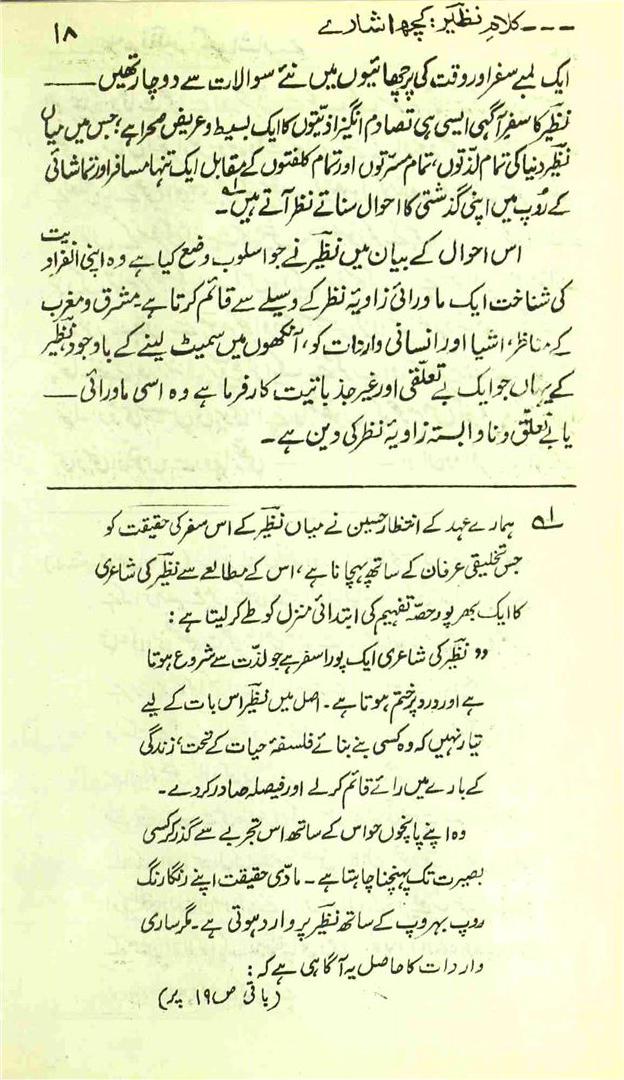 ۔۔۔ کلامِ نظیرؔ: کچھ اشارے ۱۸
ایک لمبے سفر اور وقت کی پرچھائیوں میں نئے سوالات سے دوچار تھیں ——
نظیرؔ کا سفرِ آگہی ایسی ہی تصادم انگیز اذیّتوں کا ایک بسیط و عریض صحرا ہے، جس میں میاں
نظیرؔ دنیا کی تمام لذّتوں، تمام مسرّتوں اور تمام کلفتوں کے مقابل ایک تنہا مسافر اور تماشائی
کے رُوپ میں اپنی گذشتی کا احوال سناتے نظر آتے ہیں۱؎۔
اس احوال کے بیان میں نظیرؔ نے جو اسلوب وضع کیا ہے وہ اپنی انفرادیت
کی شناخت ایک ماورائی زاویۂ نظر کے وسیلے سے قائم کرتا ہے۔ مشرق و مغرب
کے مناظر، اشیا اور انسانی واردات کو، آنکھوں میں سمیٹ لینے کے باوجود، نظیرؔ
کے یہاں جو ایک بے تعلّقی اور غیر جذباتیت کارفرما ہے وہ اسی ماورائی ——
یا بے تعلّق و ناوابستہ زاویۂ نظر کی دین ہے۔
۱؎ ہمارے عہد کے انتظار حسین نے میاں نظیرؔ کے اس سفر کی حقیقت کو
جس تخلیقی عرفان کے ساتھ پہچانا ہے، اس کے مطالعے سے نظیرؔ کی شاعری
کا ایک بھرپور حصّہ تفہیم کی ابتدائی منزل کو طے کر لیتا ہے:
”نظیرؔ کی شاعری ایک پورا سفر ہے جو لذّت سے شروع ہوتا
ہے اور درد پر ختم ہوتا ہے۔ اصل میں نظیرؔ اس بات کے لیے
تیار نہیں کہ وہ کسی بنے بنائے فلسفۂ حیات کے تحت، زندگی
کے بارے میں رائے قائم کرلے اور فیصلہ صادر کردے۔
وہ اپنے پانچوں حواس کے ساتھ اس تجربے سے گذر کر کسی
بصیرت تک پہنچنا چاہتا ہے۔ مادّی حقیقت اپنے رنگارنگ
روپ بہروپ کے ساتھ نظیرؔ پر وارد ہوتی ہے۔ مگر ساری
واردات کا حاصل یہ آگاہی ہے کہ:
(باقی ص ۱۹ پر)